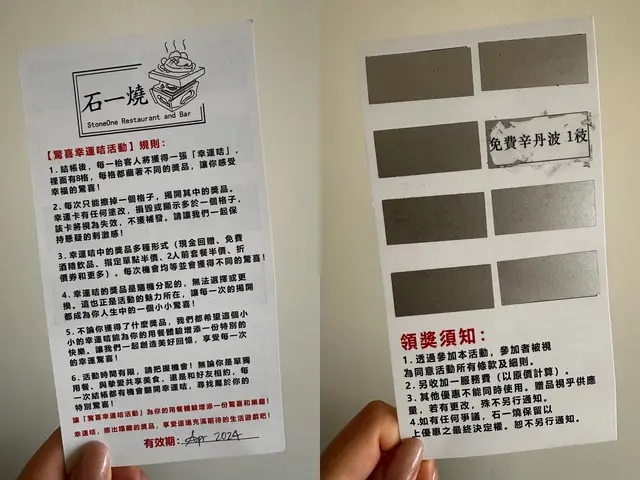 石一燒
StoneOne Restaurant and Bar
【驚喜幸運咭活動】規則：
1. 結帳後，每一枱客人將獲得一張「幸運咭」，
裡面有8格，每格都藏著不同的獎品，讓你感受
幸福的驚喜！
2. 每次只能擦掉一個格子，揭開其中的獎品。
幸運卡有任何塗改，損毀或顯示多於一個格子，
該卡將視為失效，不獲補發。請讓我們一起保
持懸疑的刺激感！
3. 幸運咭中的獎品多種形式（現金回贈、免費
酒精飲品、指定單點半價、2人前套餐半價、折
價券和更多）。每次機會均等並會獲得不同的驚喜！
4. 幸運咭的獎品是隨機分配的，無法選擇或更
換。這也正是活動的魅力所在，讓每一次的揭開
都成為你人生中的一個小小驚喜！
5. 不論你獲得了什麼獎品，我們都希望這個小
小的幸運咭能為你的用餐體驗增添一份特別的
快樂。讓我們一起創造美好回憶，享受每一次
的幸運驚喜！
6. 活動時間有限，請把握機會！無論你是單獨
用餐、與摯愛共享美食，還是和好友相約，每
一次結帳都有機會翻開幸運咭，尋找屬於你的
特別驚喜！
讓「驚喜幸運咭活動」為你的用餐體驗增添一份驚喜和樂趣！
幸運咭，擦出隱藏的獎品，享受這場充滿期待的生活遊戲吧！
有效期：Apr 2024
免費辛丹波 1枝
領獎須知：
1. 透過參加本活動，參加者被視
為同意活動所有條款及細則。
2. 另收加一服務費（以原價計算）。
3. 其他優惠不能同時使用。贈品視乎供應
量，若有更改，殊不另行通知。
4. 如有任何爭議，石一燒保留以
上優惠之最終決定權。恕不另行通知。